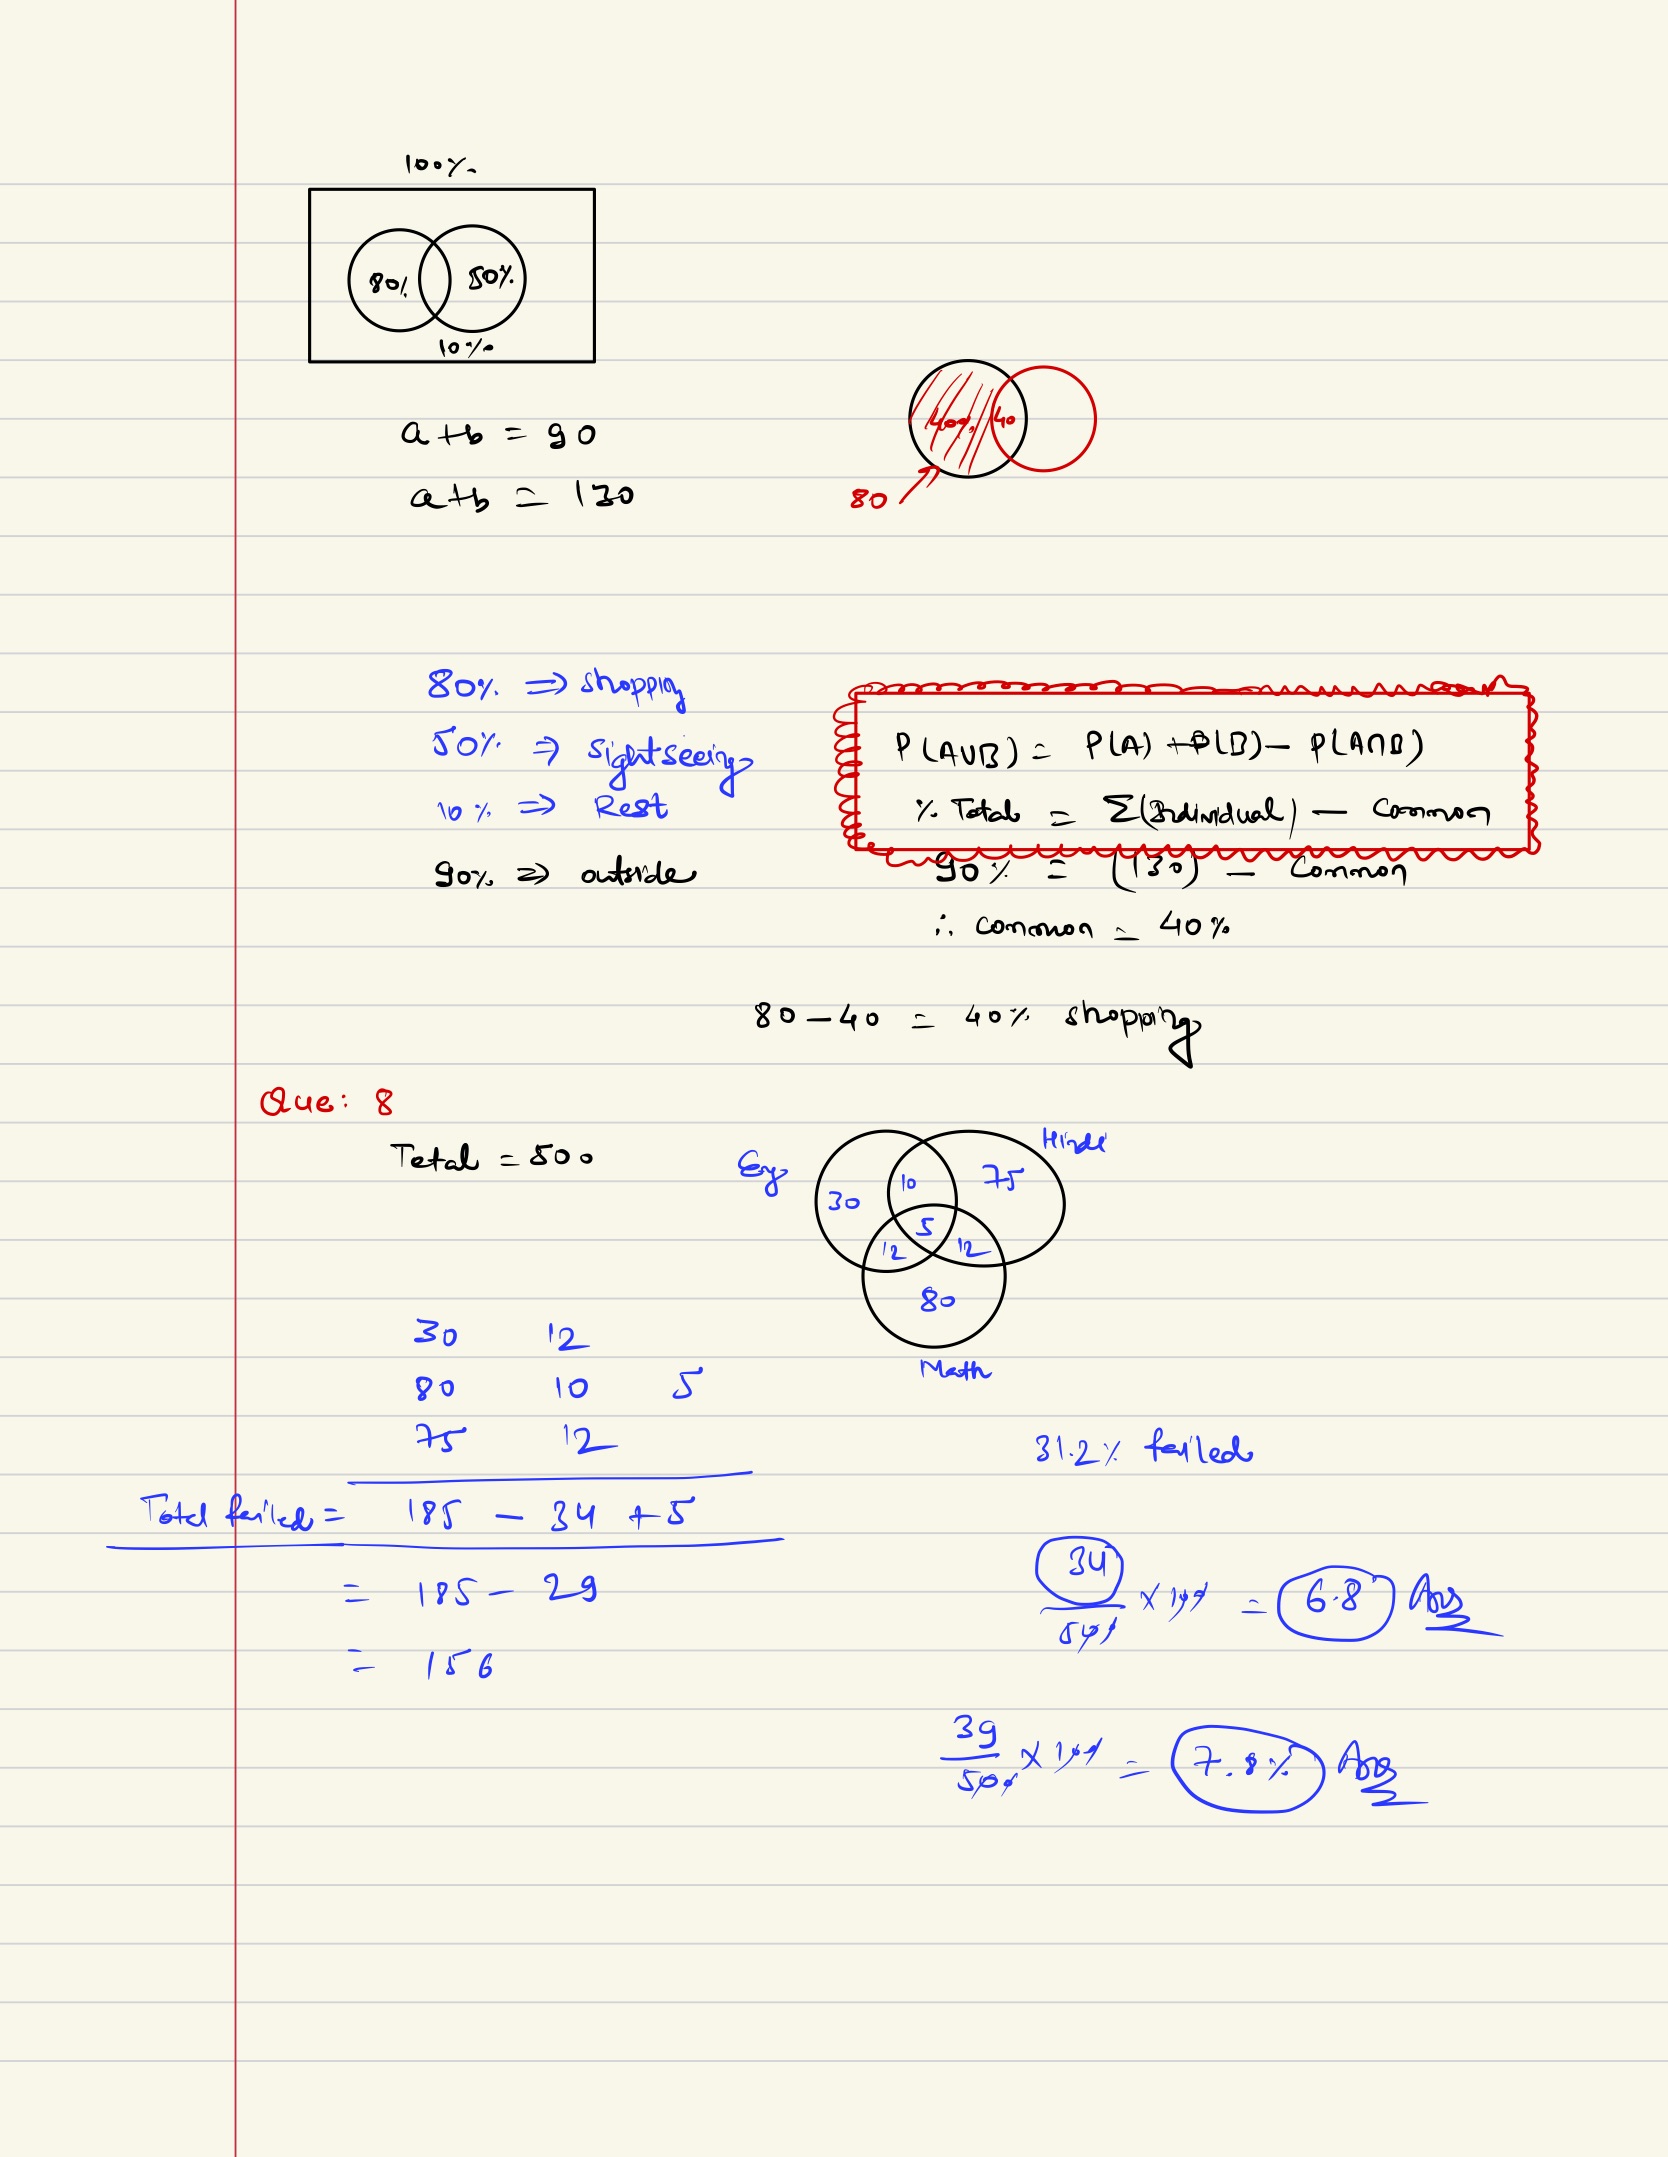 100%
80% 50%
10%
a+b = 90
a+b = 130
40% 40
80
80% ⇒ shopping
50% ⇒ sightseeing
10% ⇒ Rest
90% ⇒ outside
P(A∪B) = P(A) + P(B) - P(A∩B)
% Total = Σ(Individual) - Common
90% = (130) - Common
∴ common = 40%
80-40 = 40% shopping
Que: 8
Total = 500
Eng Hindi
30 10 75
5
12 12
80
Math
30 12
80 10 5
75 12
Total failed = 185 - 34 + 5
= 185 - 29
= 156
31.2% failed
34/500 × 100 = 6.8 Ans
39/500 × 100 = 7.8% Ans